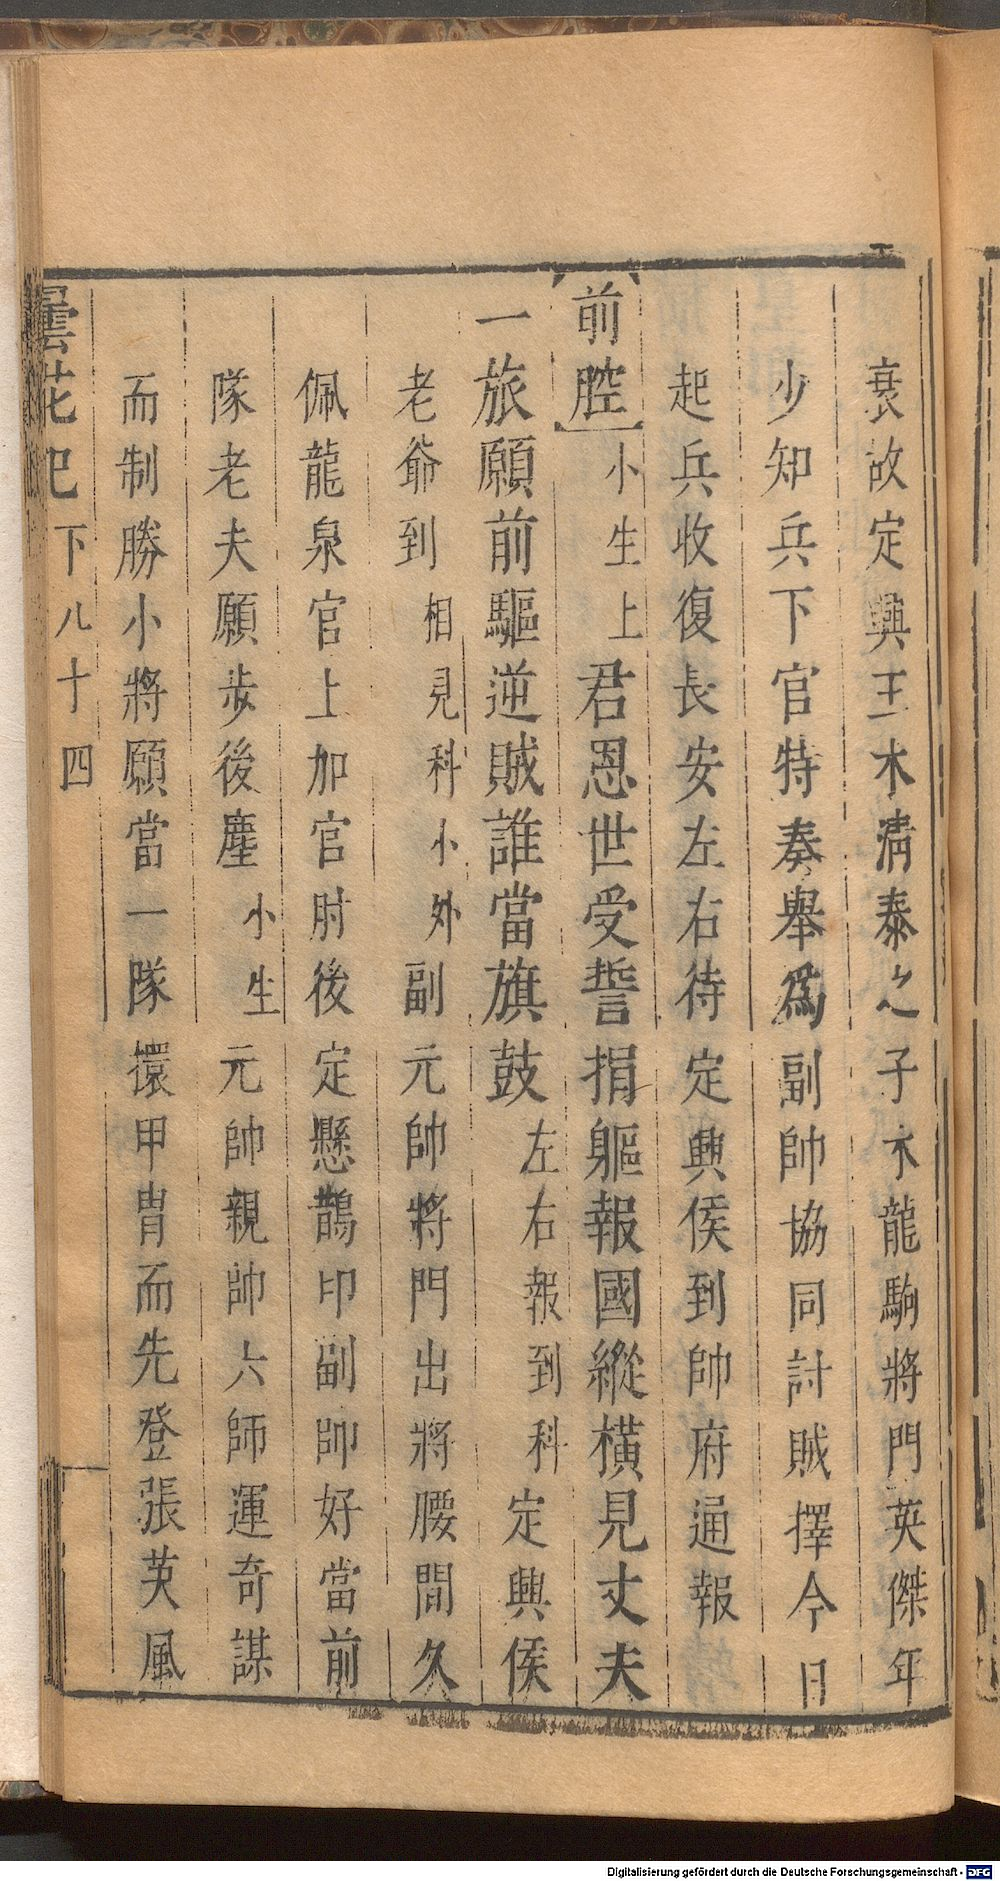 衰故定興王木清泰之子木龍駒將門英傑年
少知兵下官特奏舉爲副帥協同討賊擇今日
起兵收復長安左右待定興侯到帥府通報
前腔小生上君恩世受誓捐軀報國縱橫見丈夫
一旅願前驅逆賊誰當旗鼓左右報到科定興侯
老爺到相見科小外副元帥將門出將腰間久
佩龍泉官上加官肘後定懸鵲印副帥好當前
隊老夫願步後塵小生元帥親帥六師運奇謀
而制勝小將願當一隊擐甲胄而先登張英風
曇花記下八十四
Digitalisierung gefördert durch die Deutsche Forschungsgemeinschaft - DFG